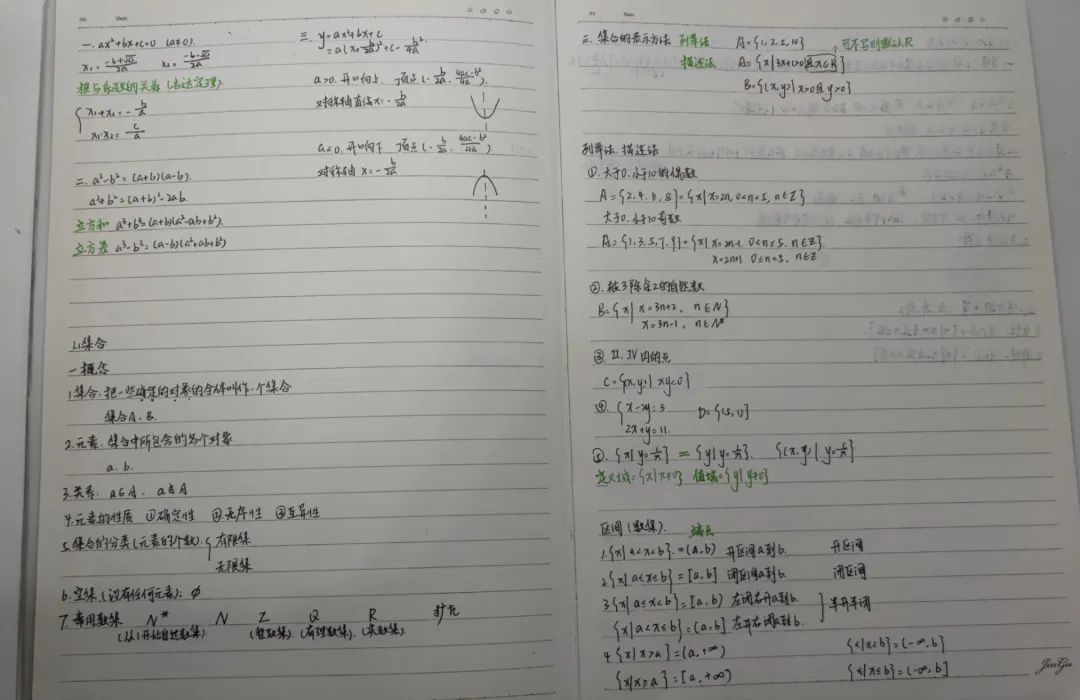 No Date
一. ax²+bx+c=0 (a≠0).
x₁= (-b+√Δ)/2a x₂= (-b-√Δ)/2a
根与系数的关系(韦达定理).
x₁+x₂=-b/a
x₁·x₂=c/a
二. a²-b²=(a+b)(a-b).
a²+b²=(a+b)²-2ab.
立方和 a³+b³=(a+b)(a²-ab+b²).
立方差 a³-b³=(a-b)(a²+ab+b²)
三. y=ax²+bx+c
=a(x+b/2a)²+c-b²/4a.
a>0. 开口向上. 顶点(-b/2a, (4ac-b²)/4a).
对称轴直线x=-b/2a
a<0. 开口向下 顶点(-b/2a, (4ac-b²)/4a).
对称轴 x=-b/2a
1.1集合
一概念
1.集合. 把一些确定的对象的全体叫作一个集合
集合A. B.
2.元素. 集合中所包含的每个对象
a. b.
3.关系: a∈A. a∉A
4.元素的性质 ①确定性 ②无序性 ③互异性
5.集合的分类(元素的个数). { 有限集
无限集
6.空集(没有任何元素): ∅
7.常用数集 N* N Z Q R 扩充
(从1开始自然数集) (整数集). (有理数集). (实数集).
No Date
三. 集合的表示方法 列举法 A={1,2,5,10} 可不写则默认R
描述法 A={x|3x+1>0且x∈R}
B={(x,y)|x>0且y>0}
列举法. 描述法
①. 大于0.小于10的偶数
A={2.4.6.8}={x|x=2n,0<n<5,n∈Z}
大于0.小于10奇数
A={1.3.5.7.9}={x|x=2n-1. 0<n≤5. n∈Z}.
x=2n+1 0≤n<5. n∈Z
②. 被3除余2的自然数
B={x|x=3n+2, n∈N}
x=3n-1, n∈N*
③ II. IV 内的点
C={(x,y)|xy<0}
④. { x-2y=3 D={(5,1)}
2x+y=11.
⑤. {x|y=1/x} = {y|y=1/x}. {(x.y)|y=1/x}
定义域={x|x≠0} 值域={y|y≠0}
区间(数集). 端点
1.{x|a<x<b}.=(a,b) 开区间a到b. 开区间
2{x|a≤x≤b}=[a,b] 闭区间a到b 闭区间
3{x|a≤x<b}=[a,b) 左闭右开a到b. } 半开半闭
{x|a<x≤b}=(a,b] 左开右闭a到b.
4{x|x>a}=(a,+∞) {x|x<b}=(-∞,b)
{x|x≥a}=[a,+∞) {x|x≤b}=(-∞,b]